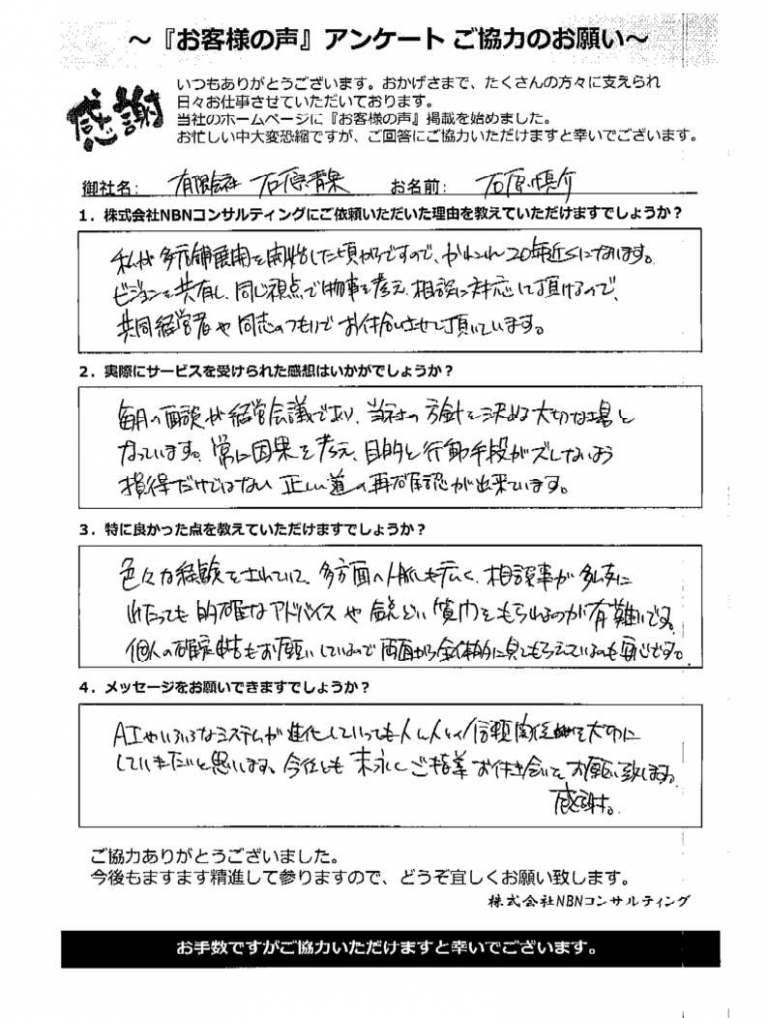 ～『お客様の声』アンケート ご協力のお願い～
感謝
いつもありがとうございます。おかげさまで、たくさんの方々に支えられ
日々お仕事させていただいております。
当社のホームページに『お客様の声』掲載を始めました。
お忙しい中大変恐縮ですが、ご回答にご協力いただけますと幸いでございます。
御社名: 有限会社 石原青果 お名前: 石原慎介
1．株式会社NBNコンサルティングにご依頼いただいた理由を教えていただけますでしょうか？
私が多店舗展開を開始した頃からですので、かれこれ20年近くになります。
ビジョンを共有し、同じ視点で物事を考え、相談に対応して頂けるので、
共同経営者や同志のつもりでお付合いさせて頂いています。
2．実際にサービスを受けられた感想はいかがでしょうか？
毎月の面談が経営会議であり、当社の方針を決める大切な場と
なっています。常に因果を考え、目的と行動手段がズレないよう
損得だけではない正しい道の再確認が出来ています。
3．特に良かった点を教えていただけますでしょうか？
色々な経験をされていて、多方面へ人脈も広く、相談事が多岐に
わたっても的確なアドバイスや鋭どい質問をもらえるのが有難いです。
個人の確定申告もお願いしているので両面から全体的に見てもらえているのも安心です。
4．メッセージをお願いできますでしょうか？
AIやいろいろなシステムが進化していっても人と人との信頼関係を大切に
していきたいと思います。今後とも末永くご指導お付き合いをお願い致します。
感謝。
ご協力ありがとうございました。
今後もますます精進して参りますので、どうぞ宜しくお願い致します。
株式会社NBNコンサルティング
お手数ですがご協力いただけますと幸いでございます。